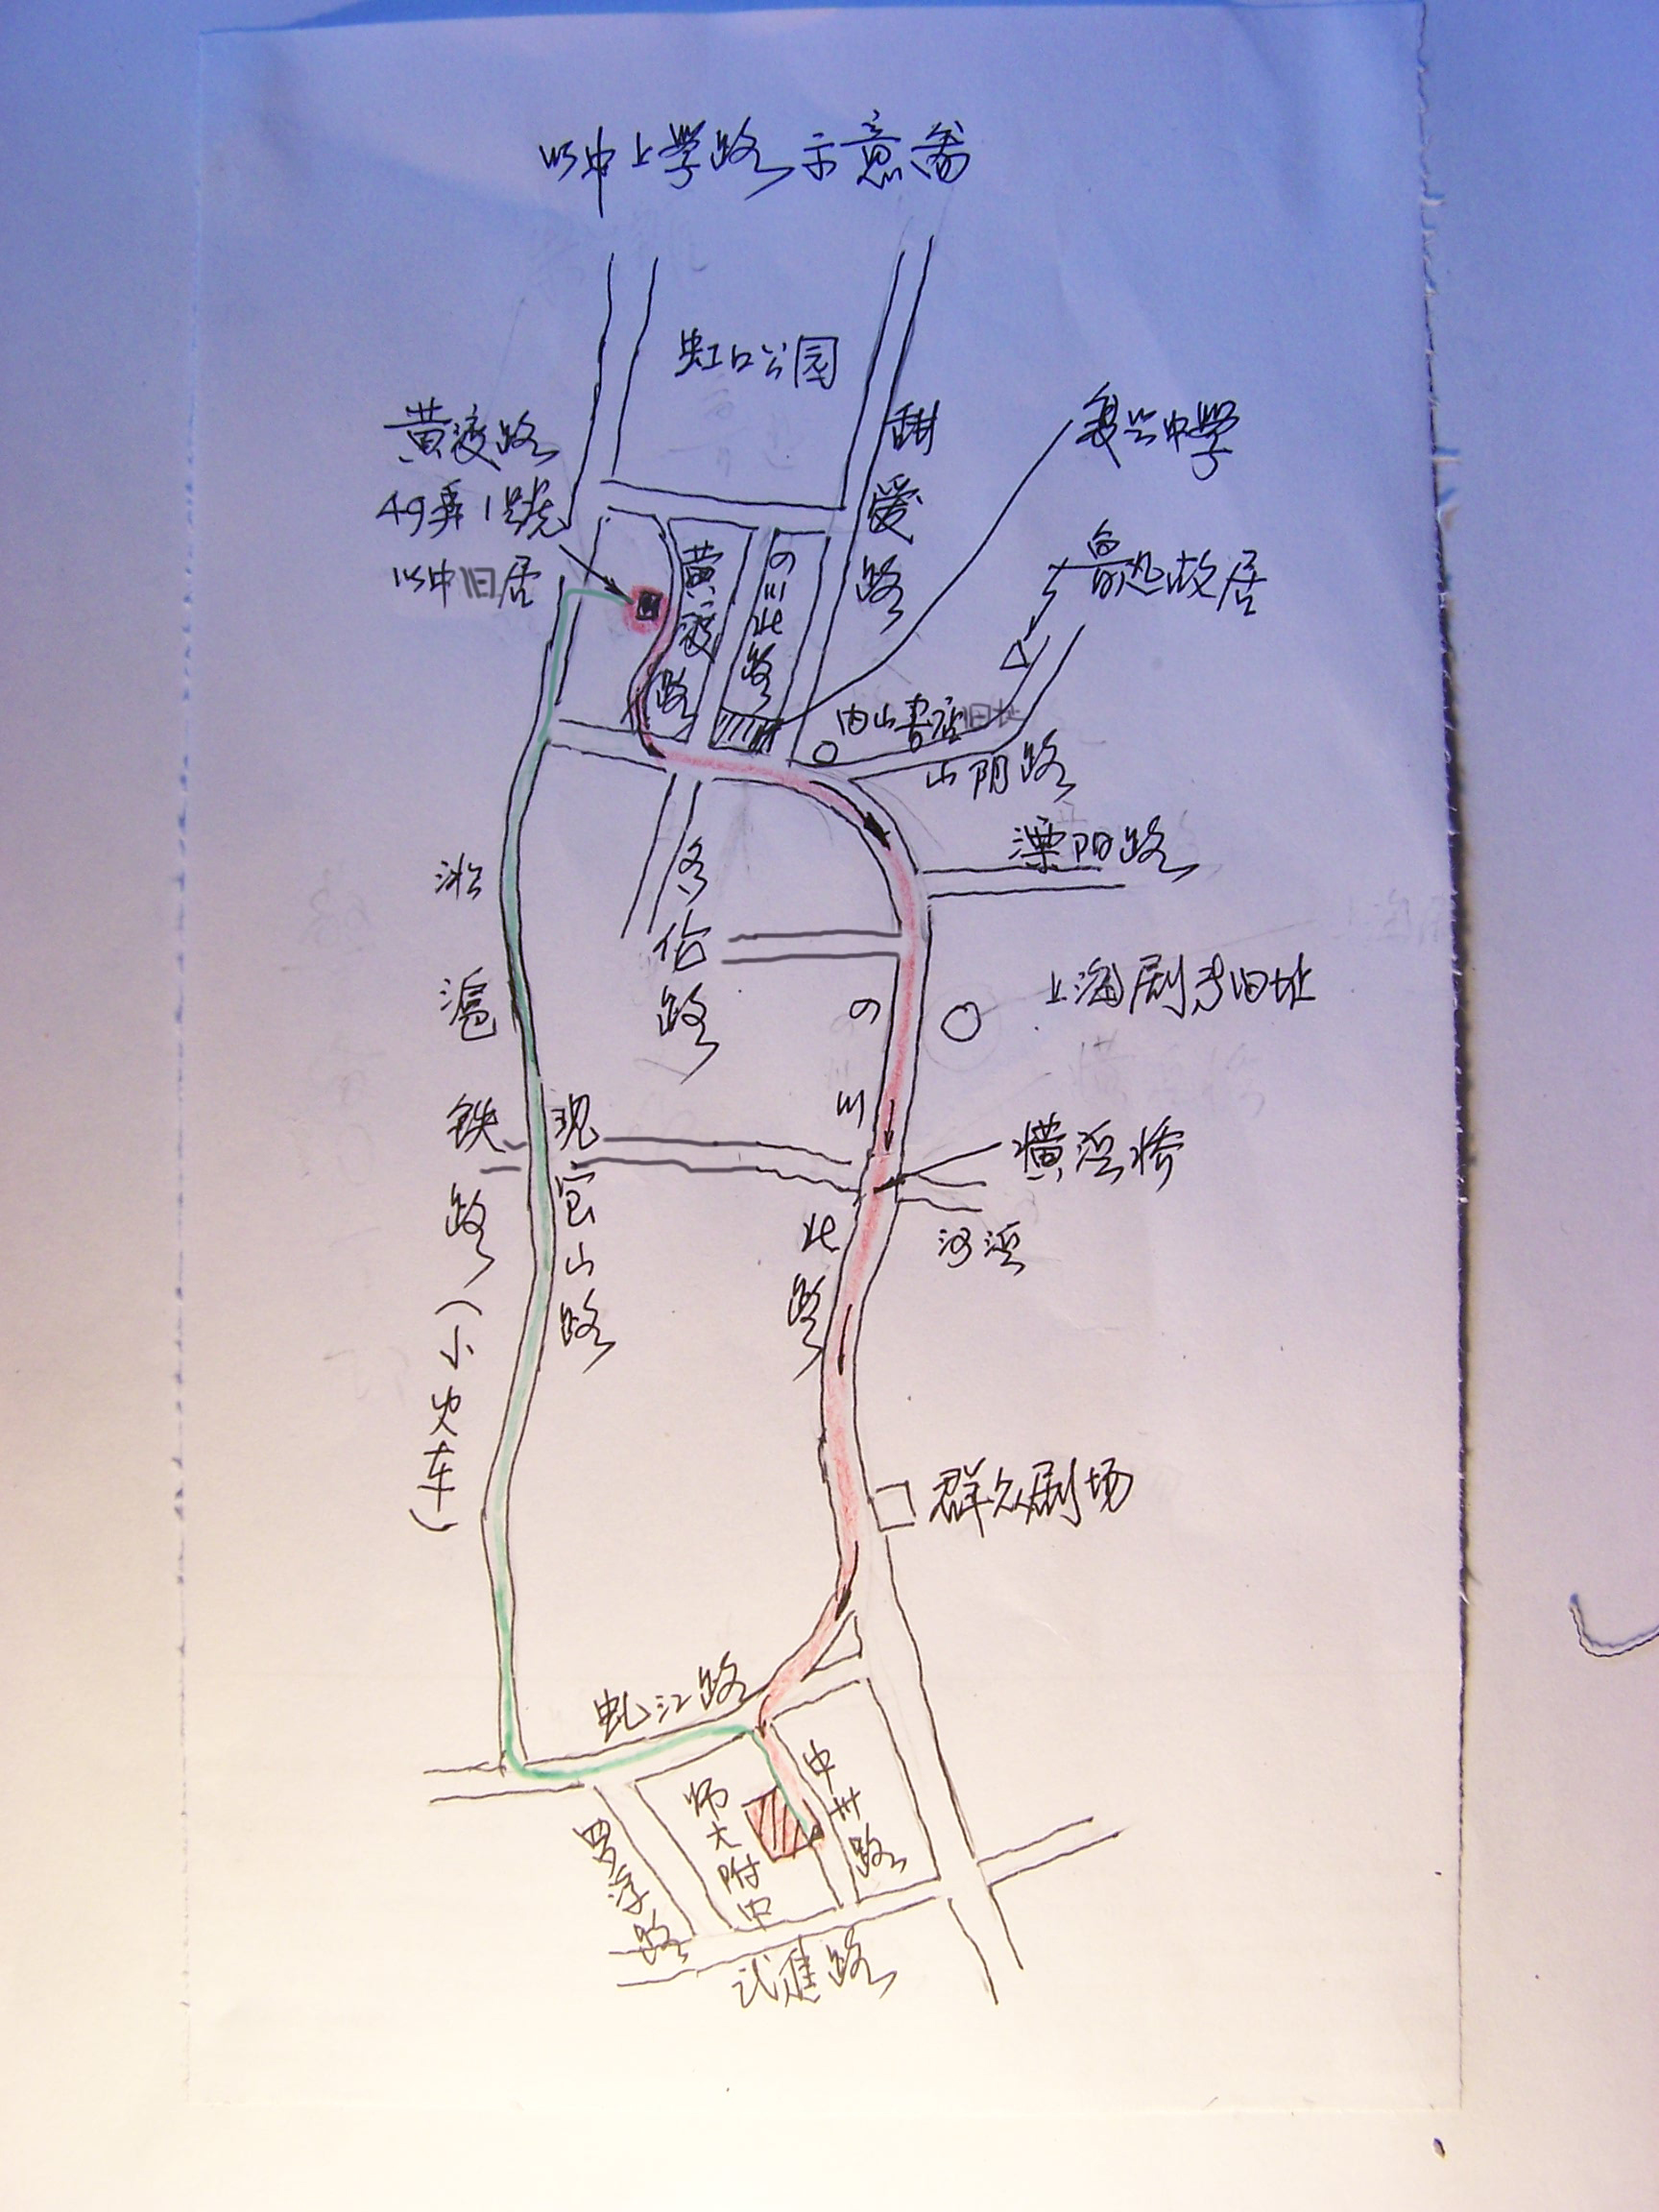 以中上学路示意图
虹口公园
黄渡路
49弄1號
以中旧居
甜爱路
复兴中学
鲁迅故居
黄渡路
四川北路
内山書店旧址
山阴路
溧阳路
多伦路
淞滬铁路(小火车)
现宝山路
四川北路
上海剧专旧址
横浜桥
河浜
群众剧场
虬江路
中州路
师大附中
罗浮路
武進路